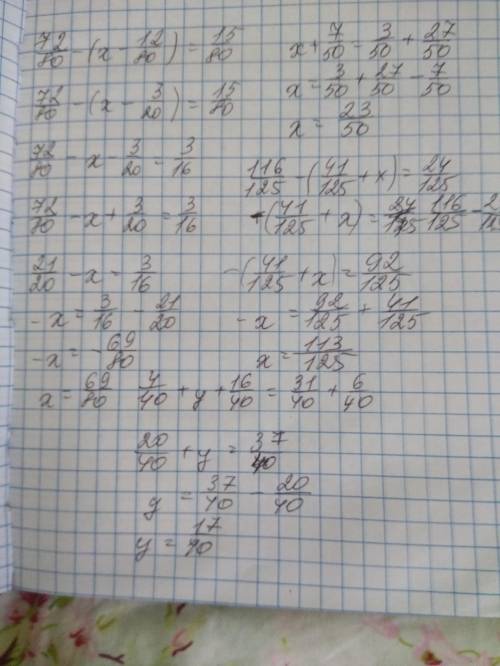 72/80 - (x - 12/80) = 15/80
72/80 - (x - 3/20) = 15/80
72/80 - x - 3/20 = 3/16
72/80 - x + 3/20 = 3/16
21/20 - x = 3/16
-x = 3/16 - 21/20
-x = -69/80
x = 69/80
x + 7/50 = 3/50 + 27/50
x = 3/50 + 27/50 - 7/50
x = 23/50
116/125 - (41/125 + x) = 24/125
-(41/125 + x) = 116/125 -
-(41/125 + x) = 92/125
-x = 92/125 + 41/125
x = 113/125
4/40 + y + 16/40 = 31/40 + 6/40
20/40 + y = 37/40
y = 37/40 - 20/40
y = 17/40